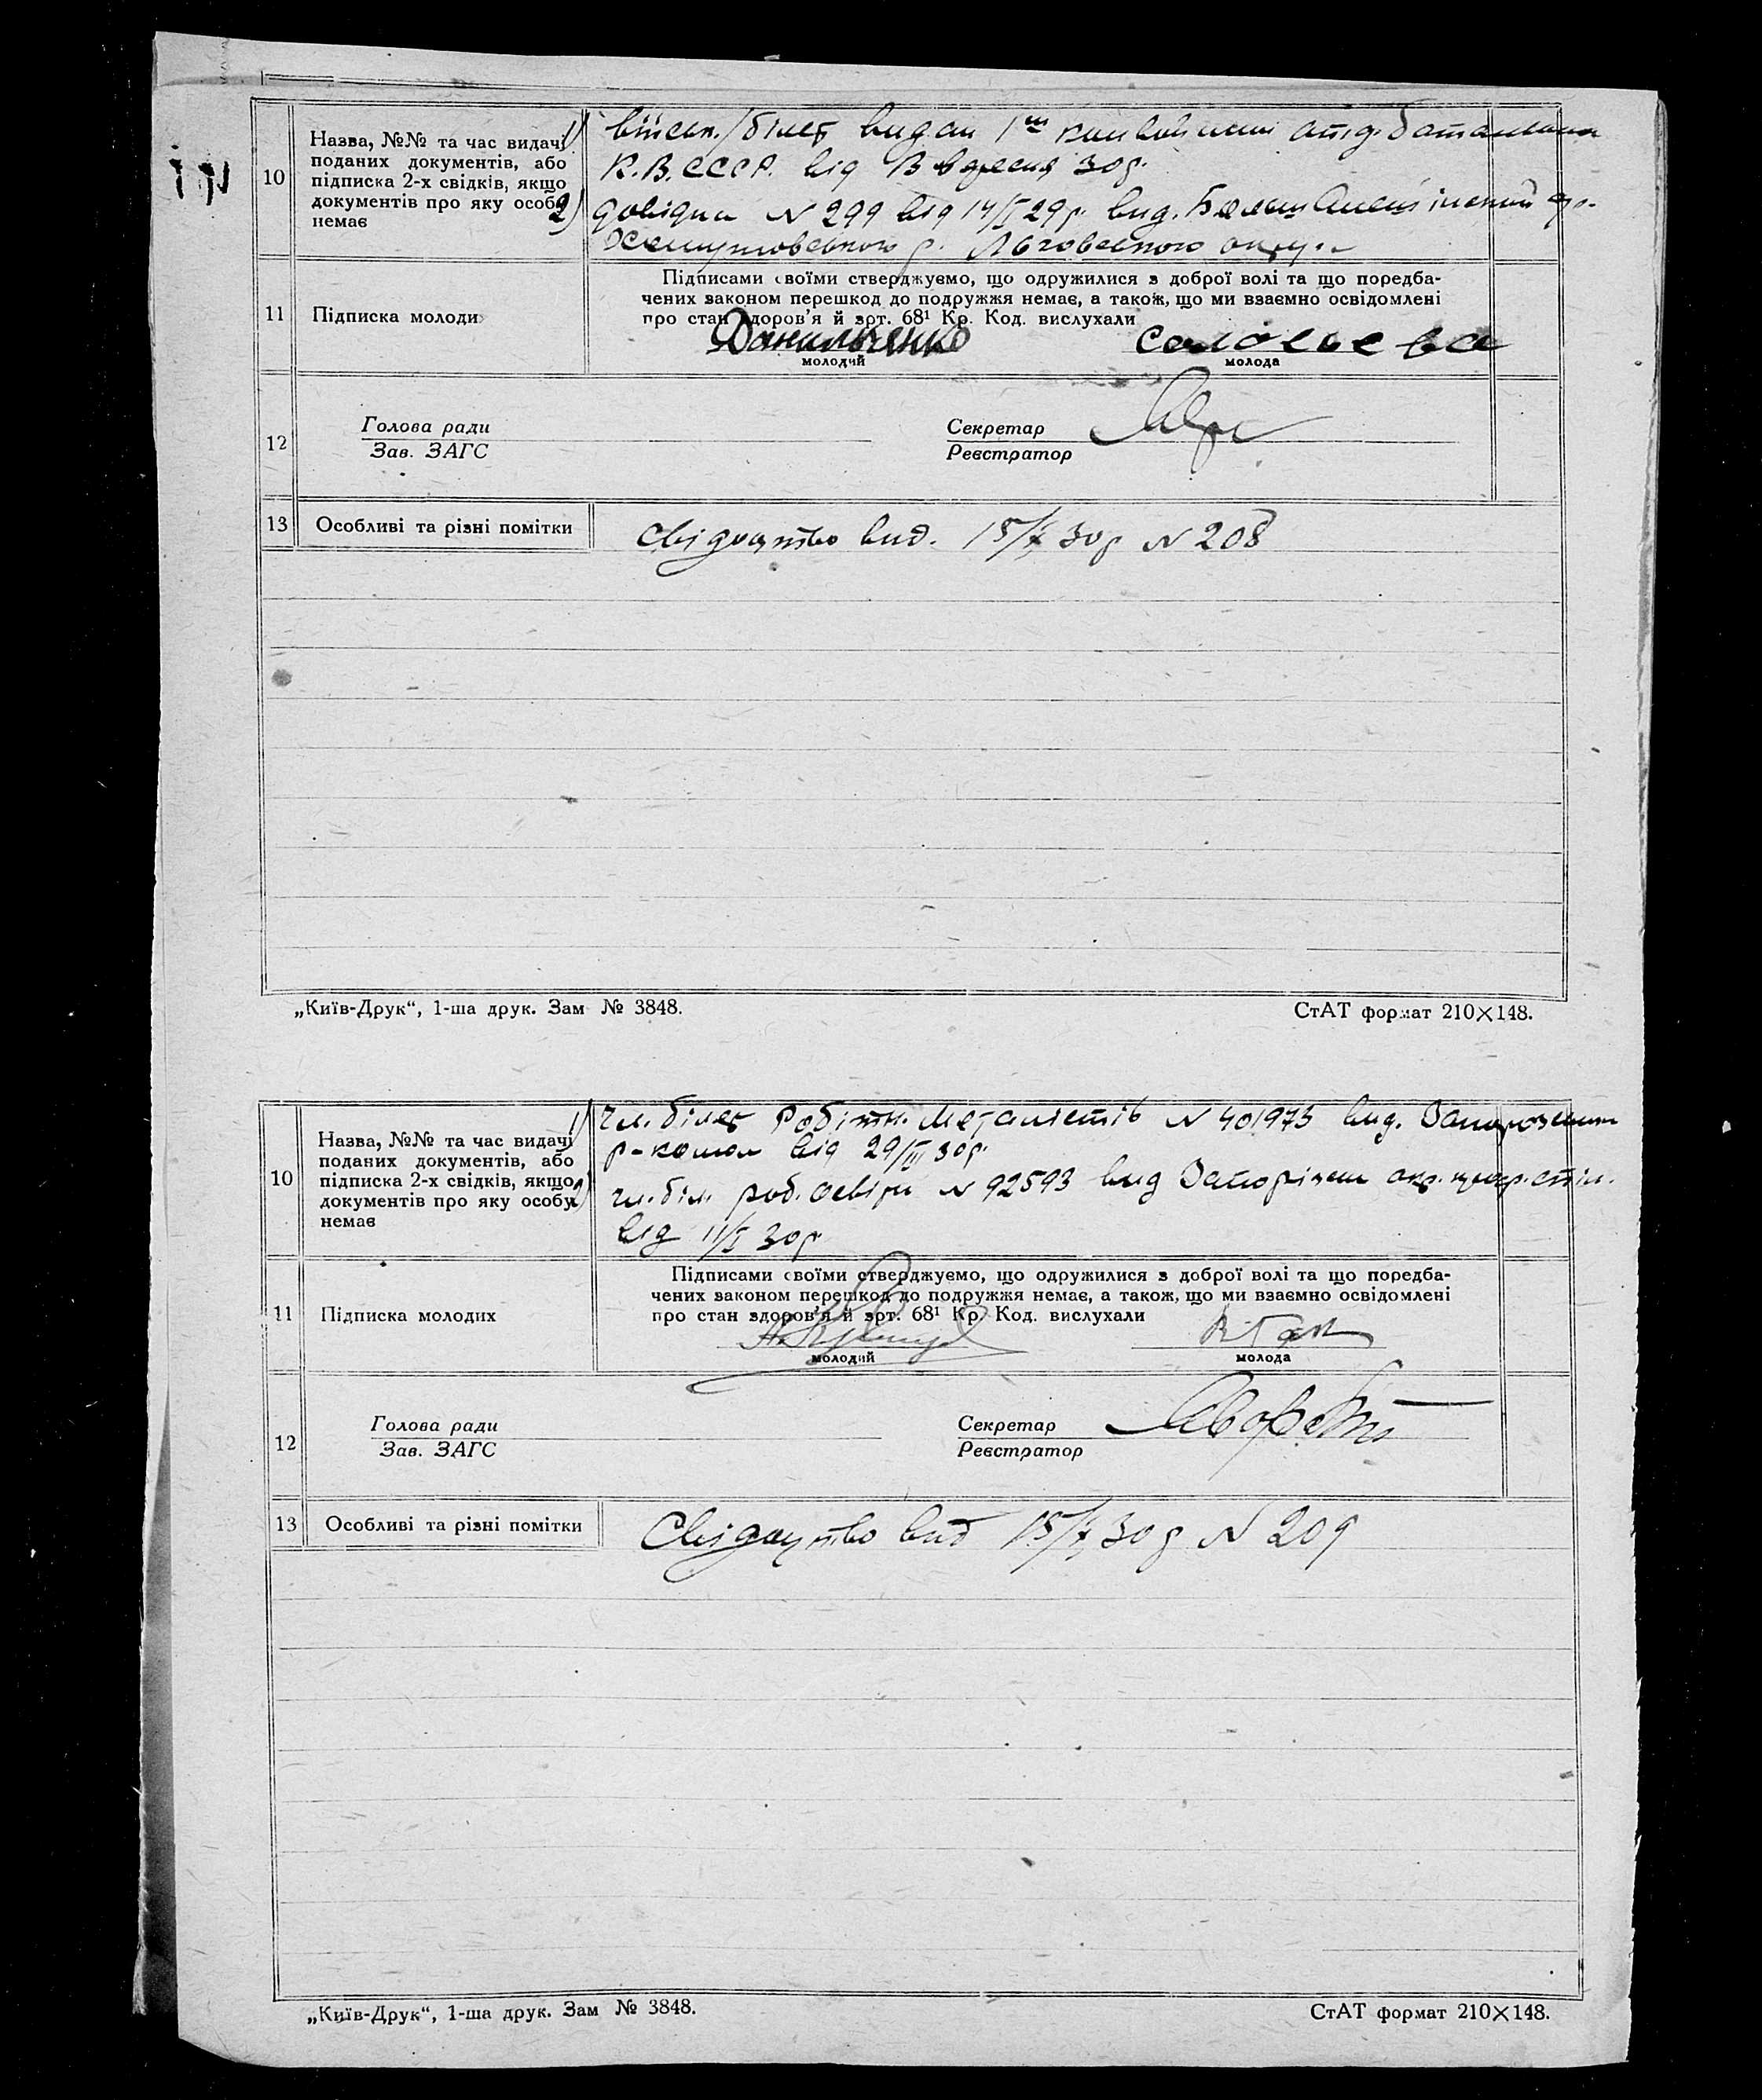 10
Назва, №№ та час видачі
поданих документів, або
підписка 2-х свідків, якщо
документів про яку особу
немає
1) військ./білет видан 1ш конвойним отд. батальйона
К.В. СССР. від вересня 30р.
2) довідка N 299 від 14/I 29р. вид.
Льговського окру.
11
Підписка молоди
Підписами своїми стверджуємо, що одружилися з доброї волі та що поредба-
чених законом перешкод до подружжя немає, а також, що ми взаємно освідомлені
про стан здоров'я й зрт. 68¹ Кр. Код. вислухали
Данильченко Соловьева
молодий молода
12
Голова ради
Зав. ЗАГС
Секретар
Реєстратор
13
Особливі та різні помітки
свідоцтво вид. 15/X 30р N 208
„Київ-Друк“, 1-ша друк. Зам № 3848. СтАТ формат 210×148.
10
Назва, №№ та час видачі
поданих документів, або
підписка 2-х свідків, якщо
документів про яку особу
немає
1) чл. білет Робітн. Металістів N 401973 вид.
р-комом від 29/III 30р.
2) чл. біл. роб. освіти N 92593 вид Запоріжськ окр.
від 11/I 30р.
11
Підписка молодих
Підписами своїми стверджуємо, що одружилися з доброї волі та що поредба-
чених законом перешкод до подружжя немає, а також, що ми взаємно освідомлені
про стан здоров'я й зрт. 68¹ Кр. Код. вислухали
молодий молода
12
Голова ради
Зав. ЗАГС
Секретар
Реєстратор
13
Особливі та різні помітки
Свідоцтво вид 15/X 30р N 209
„Київ-Друк“, 1-ша друк. Зам № 3848. СтАТ формат 210×148.